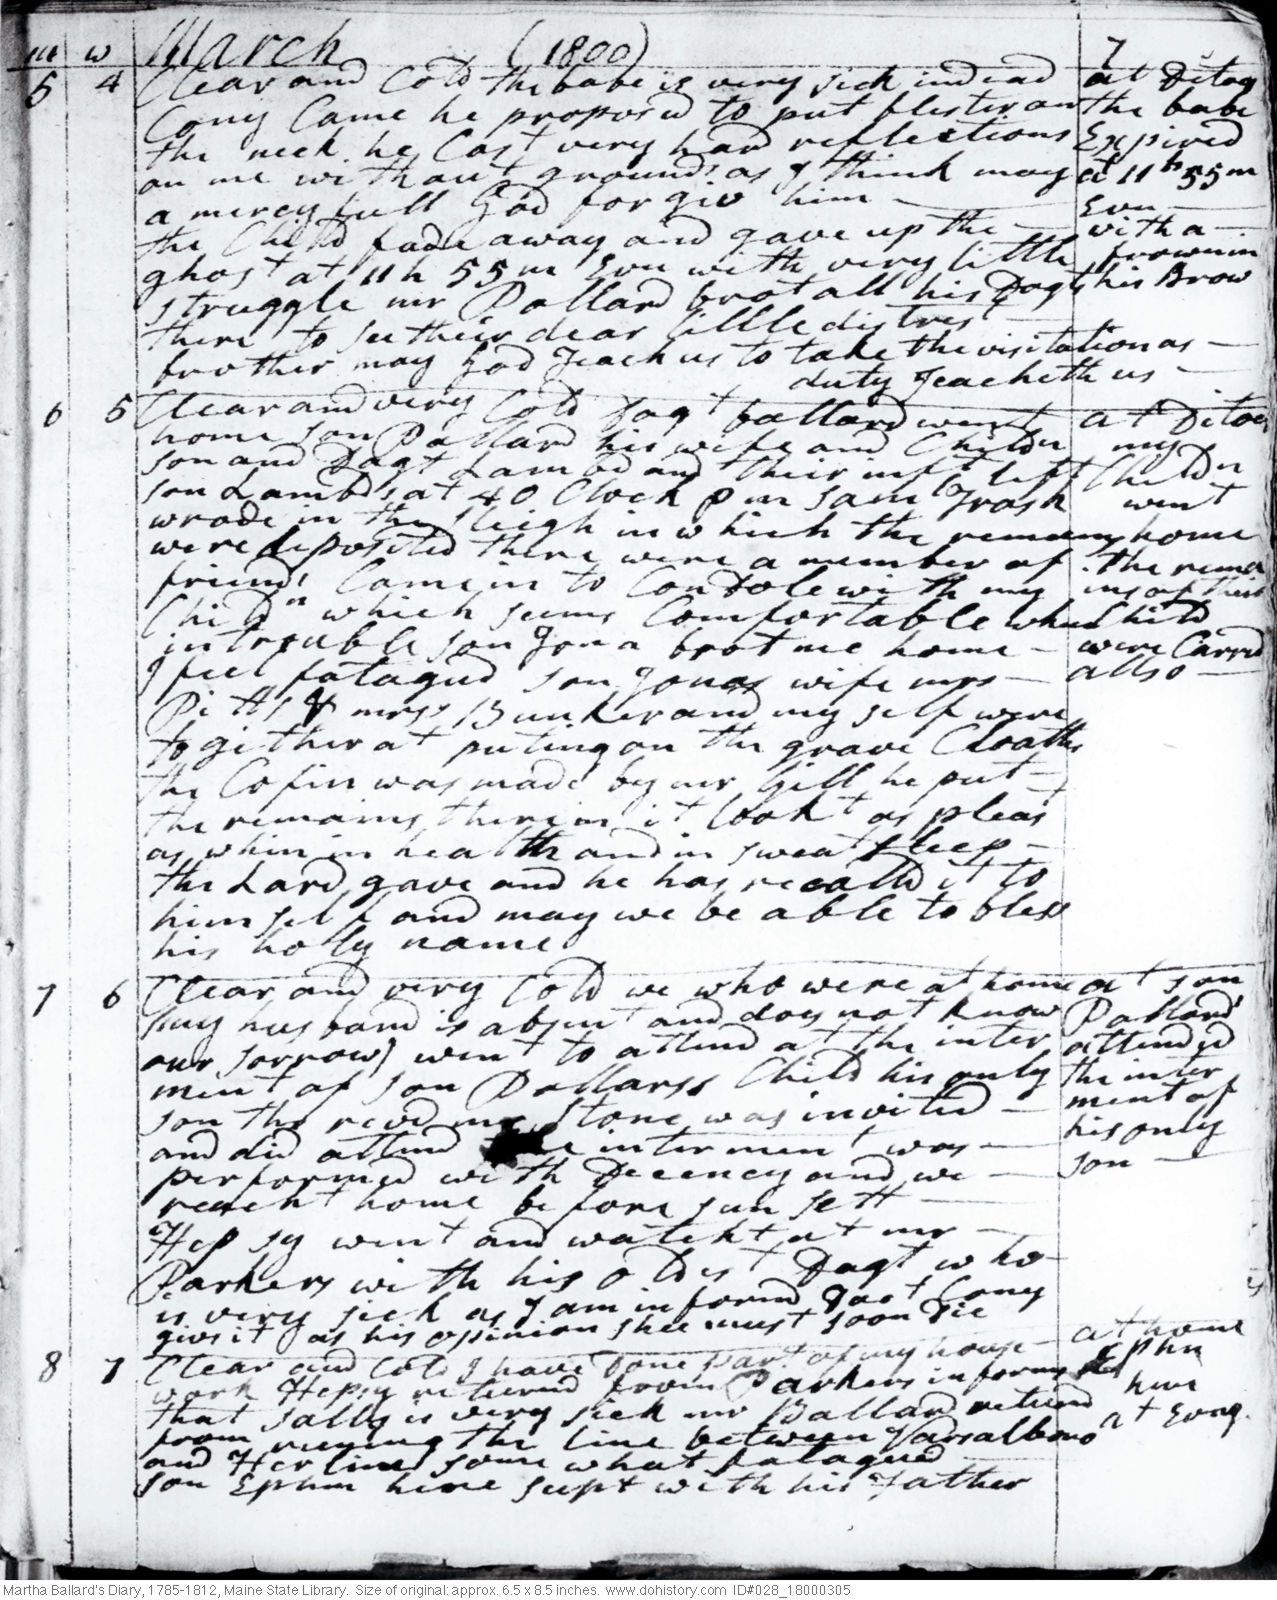 m w March (1800) 7
5 4 Clear and Cold the babe is very sick indead
Cony Came he proposed to put blester on
the neck. he Cast very hard reflections
on me without grounds as I think may
a mercyfull God forgiv him
the Child fade away and gave up the
ghost at 11 h 55 m Evn with very little
struggle mr Pollard brot all his Dagts
there to see their dear little distrest
brother may God Teach us to take the visitation as
duty Teacheth us
at Ditoes
the babe
Expired
at 11 h 55 m
Evn
with a
frown in
his Brow
6 5 Clear and very Cold Dagt ballard went
home son Pollard his wife and Childn
son and Dagt Lambd and their inft left
son Lambds at 4 O Clock p m Sam Trask
wrode in the sleigh in which the remains
were deposited there were a member of
friends Came in to Condole with my
Childn which seems Comfortable when
in trouble son Jona brot me home
I feel fatagud son Jonas wife mrs
Pitts & mrss Bunker and my self were
togither at puting on the grave Cloaths
the Cofin was made by mr Gill he put
the remains therein it lookt as pleas
as when in health and in sweat sleep
the Lard gave and he has recalld it to
himself and may we be able to bless
his holly name
at Ditoes
my
Childn
went
home
the rema
ins of their
Child
were Carrid
allso
7 6 Clear and very Cold we who were at home
(my husband is absent and does not know
our sorrow) went to attend at the inter
ment of son Pollards Child his only
son the revd mr Stone was invited
and did attend the interment was
performed with Decency and we
reacht home before sun sett
Hepsy went and watcht at mr
Parkers with his oldest Dagt who
is very sick as I am informd Doct Cony
givs it as his opinion shee must soon Die
at son
Pollards
attended
the inter
ment of
his only
son
8 7 Clear and Cold I have done part of my house
work Hepsy returnd from Parkers informs
that Sally is very sick mr Ballard returnd
from runing the line between Vassalboro
and Herlined some what fatagued
son Ephm here slept with his Father
at home
Ephm
here
at Evng.
Martha Ballard's Diary, 1785-1812, Maine State Library. Size of original: approx. 6.5 x 8.5 inches. www.dohistory.com ID#028_18000305